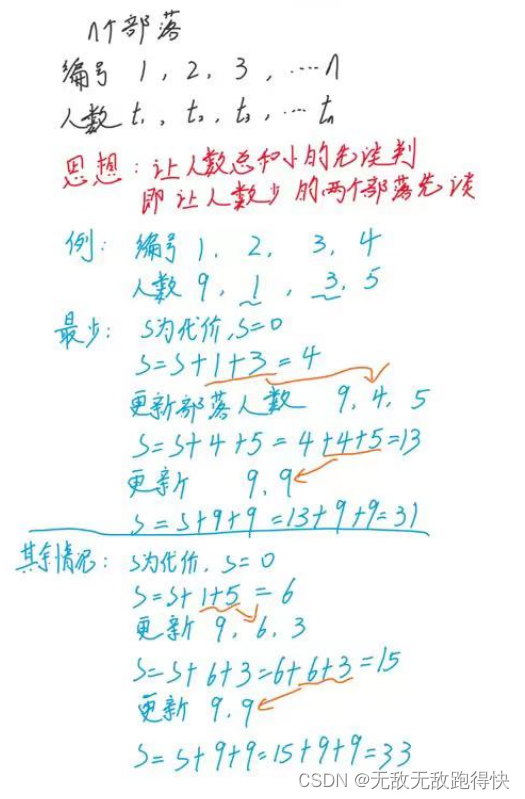 n个部落
编号 1, 2, 3, ……n
人数 t₁, t₂, t₃, …tₙ
思想：让人数总和小的先谈判
即让人数少的两个部落先谈
例：编号 1, 2, 3, 4
人数 9, 1, 3, 5
最少：S为代价, S=0
S=S+1+3=4
更新部落人数 9, 4, 5
S=S+4+5=4+4+5=13
更新 9, 9
S=S+9+9=13+9+9=31
其余情况：S为代价, S=0
S=S+1+5=6
更新 9, 6, 3
S=S+6+3=6+6+3=15
更新 9, 9
S=S+9+9=15+9+9=33
CSDN @无敌无敌跑得快